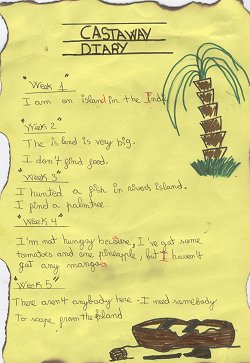 CASTAWAY
DIARY
"Week 1"
I am on island in the Indi
"Week 2"
The island is very big.
I don't find food.
"Week 3"
I hunted a fish in rivers island.
I find a palmtree.
"Week 4"
I'm not hungry because, I've got some
tomatoes and one pineapple, but I haven't
got any mangoes
"Week 5"
There aren't anybody here. I need somebody
to scape from the Island